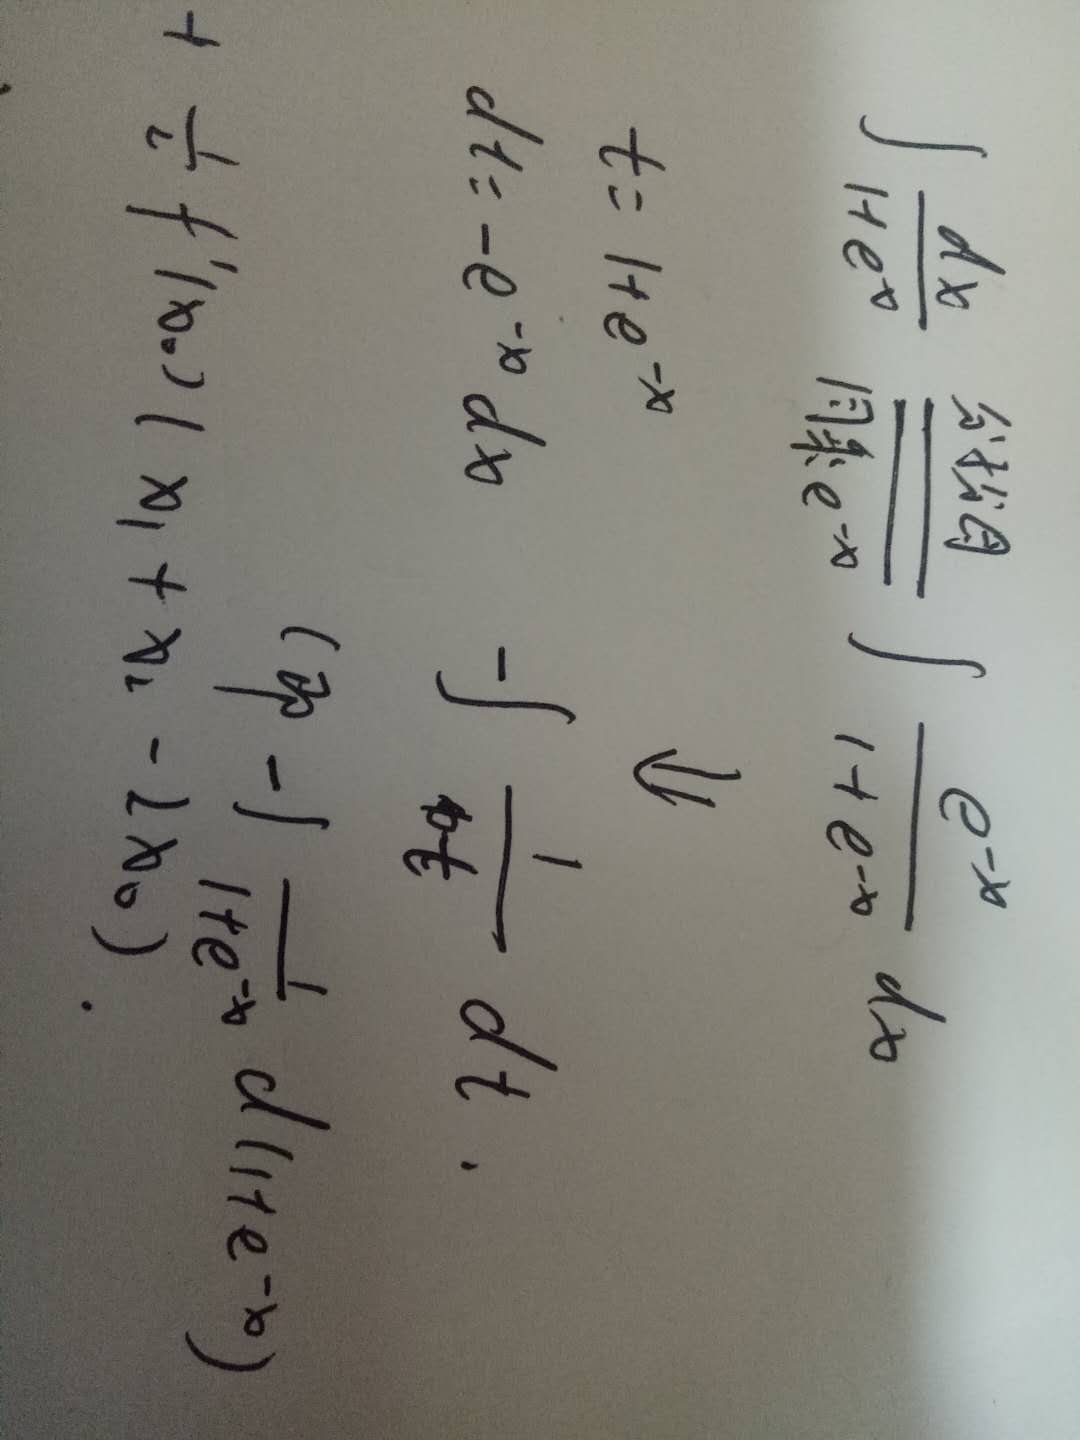 ∫ dx/(1+e^x) 分析母 同乘e^-x ∫ e^-x/(1+e^-x) dx
t = 1+e^-x ⇓
dt = -e^-x dx -∫ 1/t dt.
(即 -∫ 1/(1+e^-x) d(1+e^-x)
+ 1/2 f'(x₀) ( x₁ + x₂ - 2x₀ ).